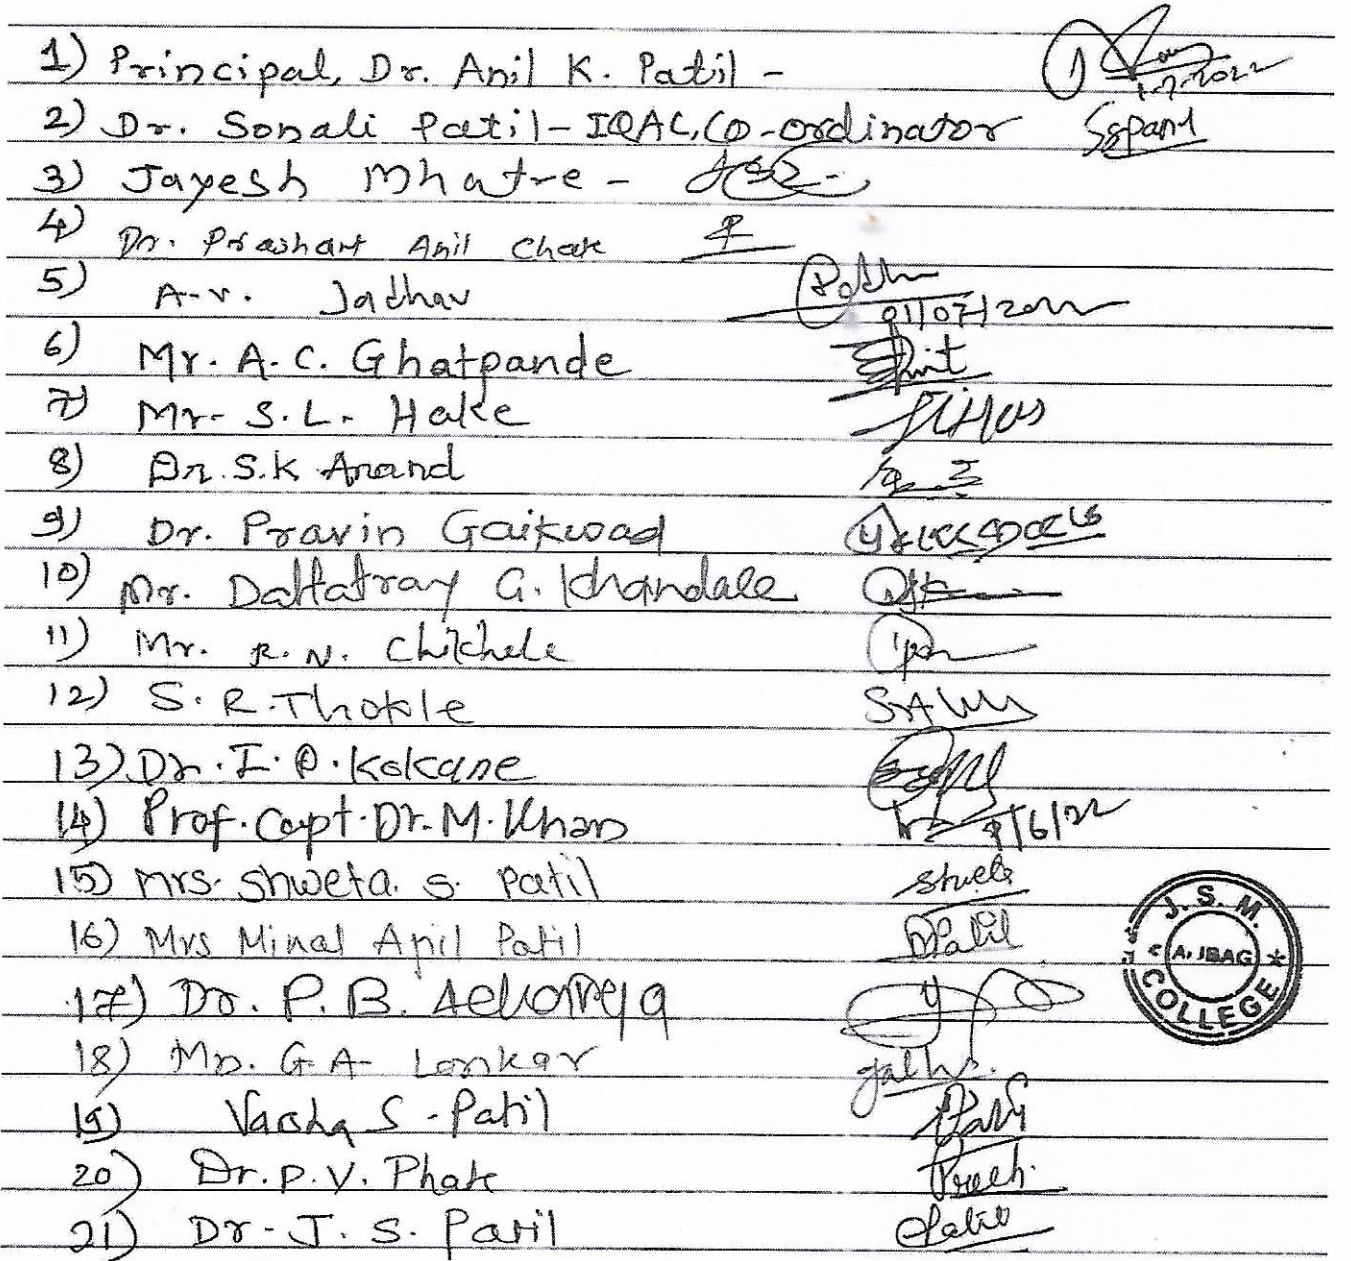 1) Principal, Dr. Anil K. Patil - 1-7-2022
2) Dr. Sonali Patil - IQAC, Co-ordinator SSPatil
3) Jayesh Mhatre -
4) Dr. Prashant Anil
5) A.V. Jadhav 01/07/2022
6) Mr. A. C. Ghatpande
7) Mr. S. L. Hake
8) Dr. S. K Anand
9) Dr. Pravin Gaikwad
10) Mr. Dattatray G. Khandale
11) Mr. R. N. Chikhele
12) S. R. Thokle
13) Dr. I. P. Kokane
14) Prof. Capt. Dr. M. Khan /6/22
15) Mrs. Shweta. S. Patil Shweta
16) Mrs Minal Anil Patil Patil
J. S. M.
ALIBAG
COLLEGE
17) Dr. P. B.
18) G. A Lonkar
19) Varsha S. Patil
20) Dr. P. V. Phate
21) Dr. J. S. Patil